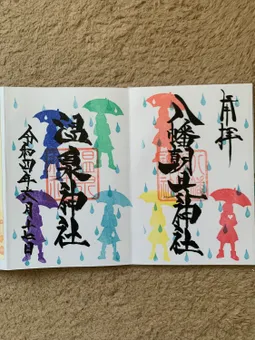 奉拝
八幡朝見神社
温泉神社
令和四年 月十 日